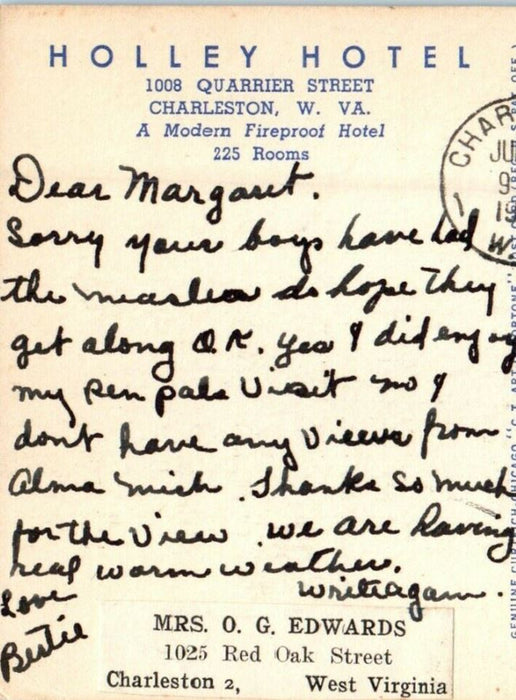 HOLLEY HOTEL
1008 QUARRIER STREET
CHARLESTON, W. VA.
A Modern Fireproof Hotel
225 Rooms
CHAR
JU
9
19
W
Dear Margaret.
Sorry your boys have had
the measles do hope they
get along O.K. Yes I did enjoy
my Pen pals Visit no I
dont have any Views from
Alma Mich. Thanks so much
for the View. we are having
real warm weather.
write again.
Love
Bertie
MRS. O. G. EDWARDS
1025 Red Oak Street
Charleston 2, West Virginia
GENUINE CURTEICH-CHICAGO "C.T. ART-COLORTONE"